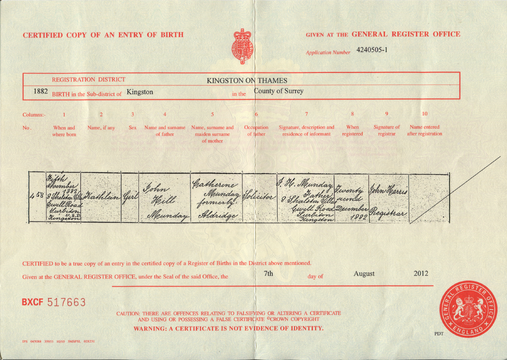 CERTIFIED COPY OF AN ENTRY OF BIRTH
GIVEN AT THE GENERAL REGISTER OFFICE
Application Number 4240505-1
REGISTRATION DISTRICT KINGSTON ON THAMES
1882 BIRTH in the Sub-district of Kingston in the County of Surrey
Columns:- 1 2 3 4 5 6 7 8 9 10
No. When and where born Name, if any Sex Name and surname of father Name, surname and maiden surname of mother Occupation of father Signature, description and residence of informant When registered Signature of registrar Name entered after registration
Fifth
1882
Kathleen Girl
John
Hill
Munday
Catherine
Munday
formerly
Aldridge
Solicitor
J. H. Munday
Father
Kingston
Twenty
second
December
1882
John Harris
Registrar
CERTIFIED to be a true copy of an entry in the certified copy of a Register of Births in the District above mentioned.
Given at the GENERAL REGISTER OFFICE, under the Seal of the said Office, the 7th day of August 2012
BXCF 517663
CAUTION: THERE ARE OFFENCES RELATING TO FALSIFYING OR ALTERING A CERTIFICATE
AND USING OR POSSESSING A FALSE CERTIFICATE ©CROWN COPYRIGHT
WARNING: A CERTIFICATE IS NOT EVIDENCE OF IDENTITY.
GENERAL REGISTER OFFICE
ENGLAND